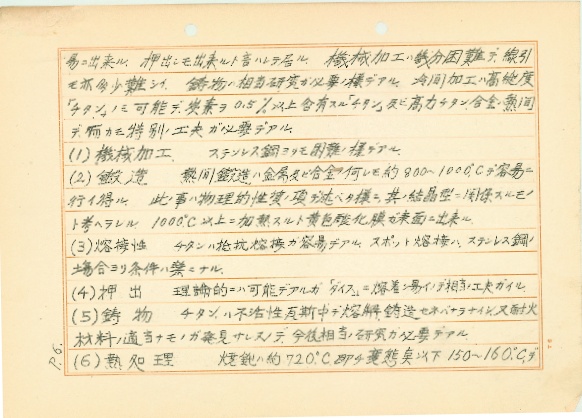 易ニ出来ル. 押出シモ出来ルト言ハレテ居ル. 機械加工ハ幾分困難デ, 線引
モ亦多少難シイ. 鋳物ハ相当研究ガ必要ノ様デアル. 冷間加工ハ高純度
「チタン」ノミ可能デ, 炭素ヲ0.5%以上含有スル「チタン」及ビ高力チタン合金ハ熱間
デ而カモ特別ノ工夫ガ必要デアル.
(1) 機械加工. ステンレス鋼ヨリモ困難ノ様デアル.
(2) 鍛造 熱間鍛造ハ金属及ビ合金ノ何レモ約800~1000℃デ容易ニ
行イ得ル. 此ノ事ハ物理的性質ノ項デ述ベタ様ニ, 其ノ結晶型ニ関係スルモノ
ト考ヘラレル. 1000℃以上ニ加熱スルト黄色酸化膜ガ表面ニ出来ル.
(3) 熔接性 チタンハ抵抗熔接ガ容易デアル. スポット熔接ハ, ステンレス鋼ノ
場合ヨリ条件ハ楽ニナル.
(4) 押出 理論的ニハ可能デアルガ「ダイス」ニ熔着シ易イノデ相当ノ工夫ガイル.
(5) 鋳物 チタンハ不活性瓦斯中デ熔解鋳造セネバナラナイシ, 又耐火
材料ノ適当ナモノガ発見サレヌノデ, 今後相当ノ研究ガ必要デアル.
(6) 熱処理 焼鈍ハ約720℃即チ変態点以下150~160℃デ
P.6.